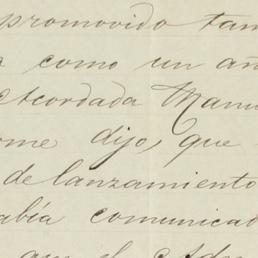 promovido tam
como un añ
acordada Manu
me dijo, que
de lanzamiento
abía comunicad
que el